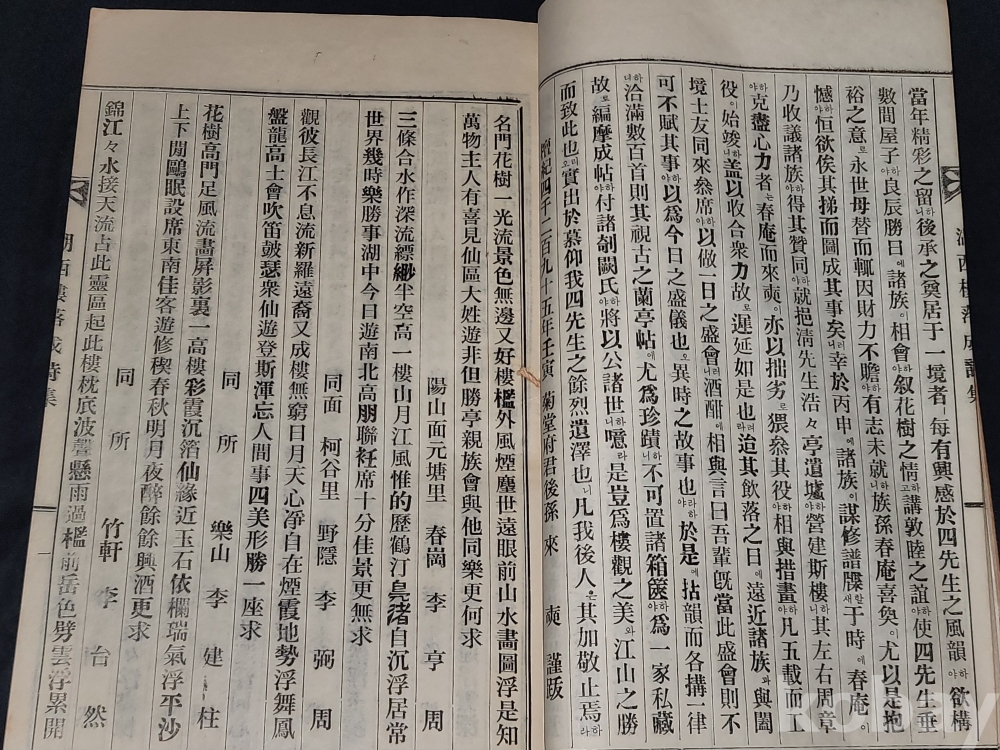 當年精彩之留니하後承之奠居于一境者ㅣ每有興感於四先生之風韻야하欲構
數間屋子야하良辰勝日에諸族이相會야하叙花樹之情고하講敦睦之誼야하使四先生垂
裕之意로永世毋替而輒因財力不贍야하有志未就니하族孫春庵喜奐이尤以是抱
憾야하恒欲俟其梯而圖成其事矣니러幸於丙申에諸族이謀修譜牒할새于時에春庵이
乃收議諸族야하得其贊同야하就挹淸先生浩々亭遺墟야하營建斯樓니하其左右周章
야하克盡心力者는春庵而來奭이亦以拙劣로猥叅其役야하相與措畫야하凡五載而工
役이始竣니하盖以收合衆力故로遲延如是也라러迨其飮落之日에遠近諸族과與闔
境士友同來叅席야하以做一日之盛會니러酒酣에相與言曰吾輩旣當此盛會則不
可不賦其事야하以爲今日之盛儀也오異時之故事也라야於是에拈韻而各搆一律
니하洽滿數百首則其視古之蘭亭帖에尤爲珍蹟니하不可置諸箱篋야하爲一家私藏
故로編摩成帖야하付諸剞劂氏야하將以公諸世니하噫라是豈爲樓觀之美와江山之勝
而致此也오리實出於慕仰我四先生之餘烈遺澤也니凡我後人은其加敬止焉라하
檀紀四千二百九十五年壬寅 菊堂府君後孫 來 奭 謹跋
湖西樓落成詩集
名門花樹一光流景色無邊又好樓檻外風煙塵世遠眼前山水畫圖浮是知
萬物主人有喜見仙區大姓遊非但勝亭親族會與他同樂更何求
陽山面元塘里 春崗 李 享 周
三條合水作深流縹緲半空高一樓山月江風惟的歷鶴汀鳧渚自沉浮居常
世界幾時樂勝事湖中今日遊南北高朋聯袵席十分佳景更無求
同面 柯谷里 野隱 李 弼 周
觀彼長江不息流新羅遠裔又成樓無窮日月天心凈自在煙霞地勢浮舞鳳
盤龍高士會吹笛皷瑟衆仙遊登斯渾忘人間事四美形勝一座求
同 所 樂山 李 建 柱
花樹高門足風流畵屛影裏一高樓彩霞沉箔仙緣近玉石依欄瑞氣浮平沙
上下閒鷗眠設席東南佳客遊修稧春秋明月夜醉餘餘興酒更求
同 所 竹軒 李 台 然
錦江々水接天流占此靈區起此樓枕底波聲懸雨過檻前岳色劈雲浮累開
湖西樓落成詩集
一
kobay